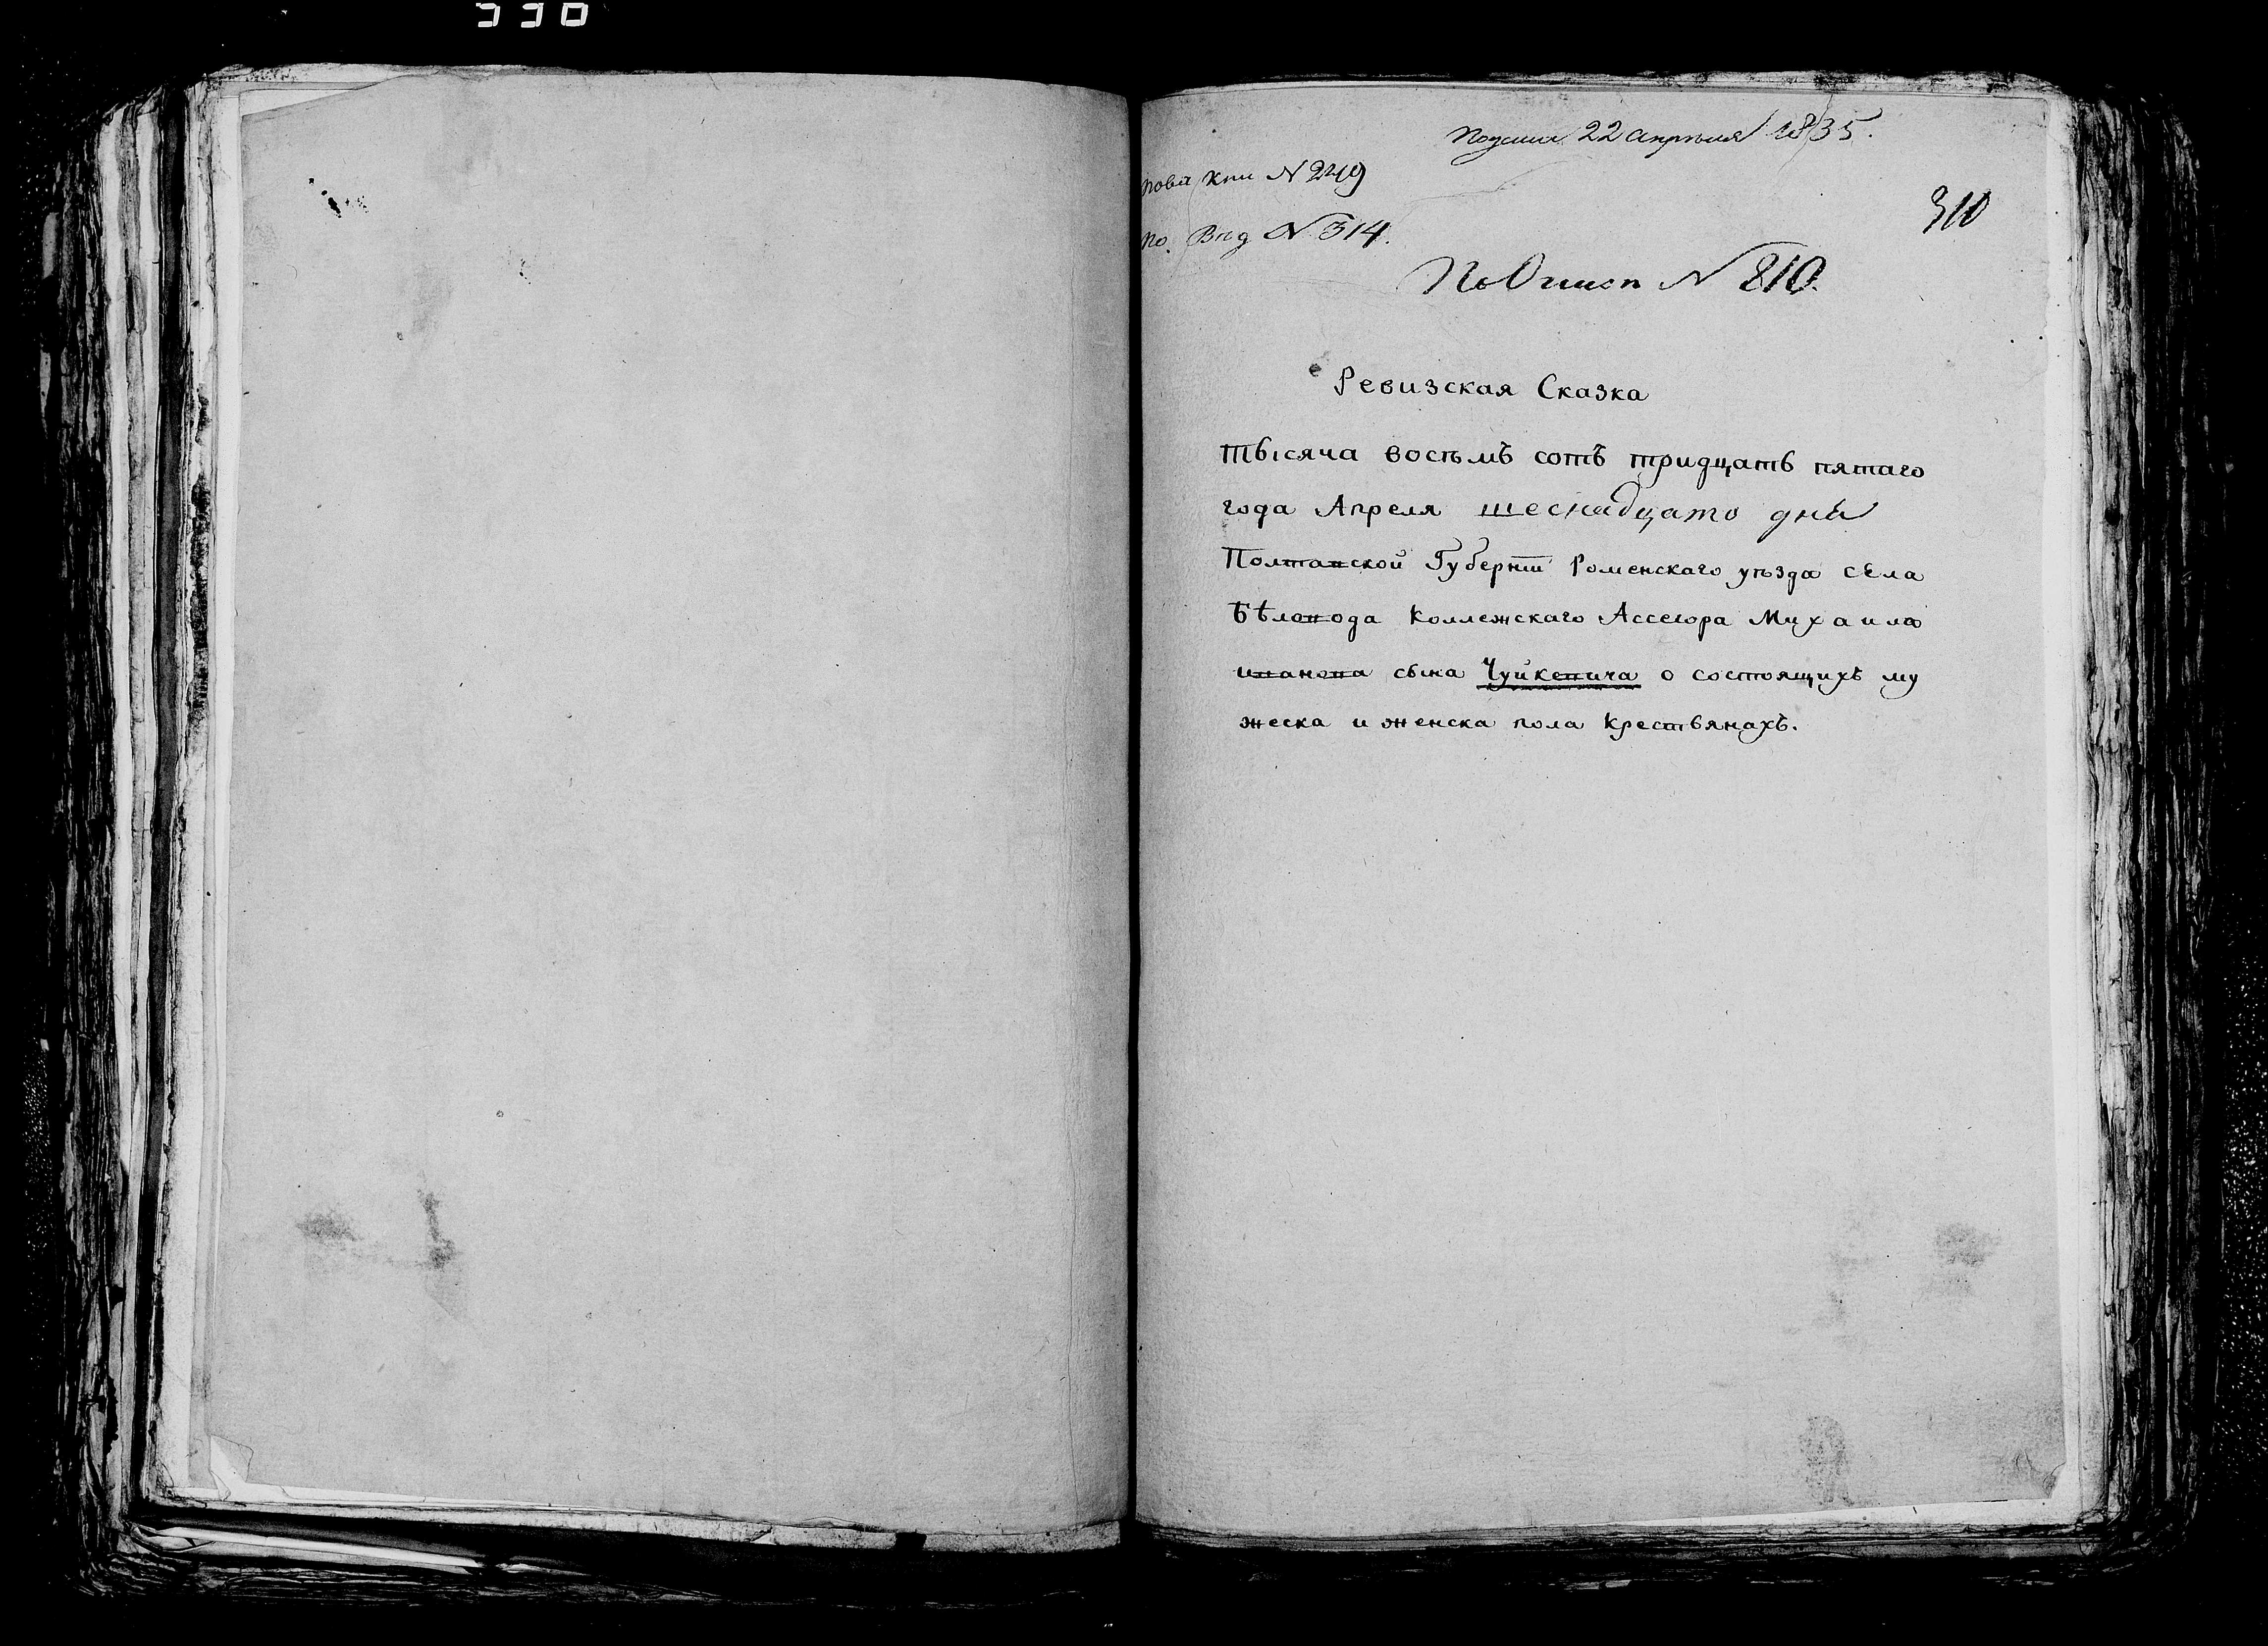 330
Подана 22 апреля 1835.
По Вѣд N 314.
310
По Описи N 810.
Ревизская Сказка
тысяча восѣмъ сотъ тридцать пятаго
года Апреля шеснадцато дня
Полтавской Губерніи Роменскаго уѣзда села
Бѣловода Коллежскаго Ассесора Михаила
иванова сына Чуйкевича о состоящихъ му
жеска и женска пола Крествянахъ.